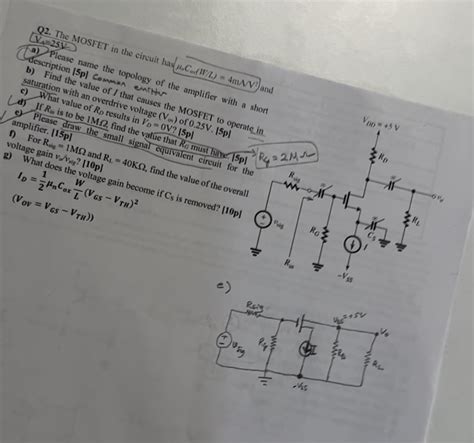 Q2. The MOSFET in the circuit has μnCox(W/L) = 4mA/V² and
VA=25V.
a) Please name the topology of the amplifier with a short
description [5p] Common emitter
b) Find the value of I that causes the MOSFET to operate in
saturation with an overdrive voltage (Vov) of 0.25V. [5p]
c) What value of RD results in VD = 0V? [5p]
d) If Rin is to be 1MΩ find the value that RG must have. [5p] RG = 2M
e) Please draw the small signal equivalent circuit for the
amplifier. [15p]
f) For Rsig = 1MΩ and RL = 40KΩ, find the value of the overall
voltage gain vo/vsig? [10p]
g) What does the voltage gain become if Cs is removed? [10p]
ID = 1/2 μnCox W/L (VGS − VTH)²
(VOV = VGS − VTH))
VDD = +5 V
RD
∞
vo
Rsig
∞
RL
vsig
RG
∞
CS
I
Rin
−VSS
e)
Rsig
+5V
Vo
Vsig
RG
-VSS